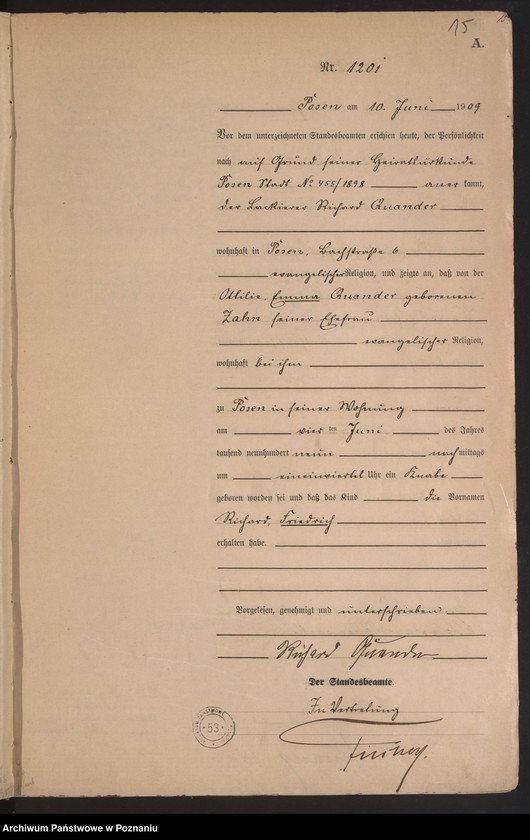 15
A.
Nr. 1201
Posen am 10. Juni 1909
Vor dem unterzeichneten Standesbeamten erschien heute, der Persönlichkeit
nach auf Grund seiner Heiratsurkunde
Posen Stadt No 455/1898 aner kannt,
der Lackierer Richard Quander
wohnhaft in Posen, Bachstraße 6
evangelischer Religion, und zeigte an, daß von der
Ottilie Emma Quander geborenen
Zahn, seiner Ehefrau
evangelischer Religion,
wohnhaft bei ihm
zu Posen in seiner Wohnung
am vier ten Juni des Jahres
tausend neunhundert neun nach mittags
um eineinviertel Uhr ein Knabe
geboren worden sei und daß das Kind die Vornamen
Richard, Friedrich
erhalten habe.
Vorgelesen, genehmigt und unterschrieben
Richard Quander
Der Standesbeamte.
In Vertretung
53
Archiwum Państwowe w Poznaniu